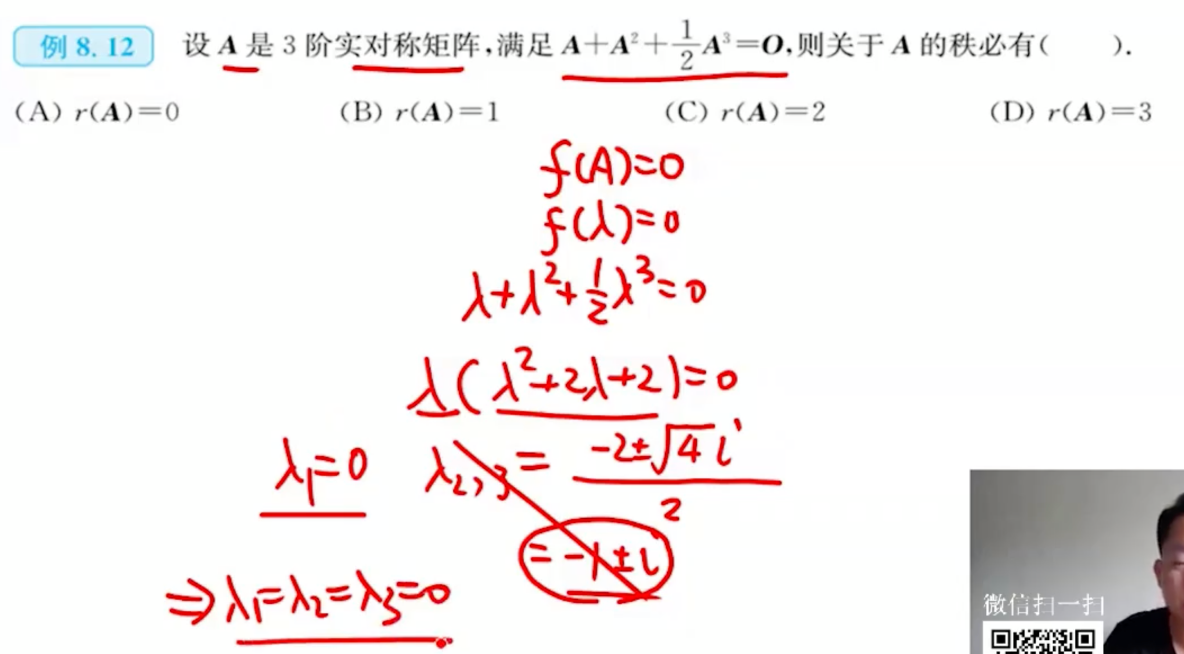 例 8.12 设 A 是 3 阶实对称矩阵,满足 A+A²+\frac{1}{2}A³=O,则关于 A 的秩必有( ).
(A) r(A)=0 (B) r(A)=1 (C) r(A)=2 (D) r(A)=3
f(A)=0
f(λ)=0
λ+λ²+\frac{1}{2}λ³=0
λ(λ²+2λ+2)=0
λ₁=0 λ₂,₃=\frac{-2±\sqrt{4}i}{2}
=-1±i
⇒λ₁=λ₂=λ₃=0
微信扫一扫